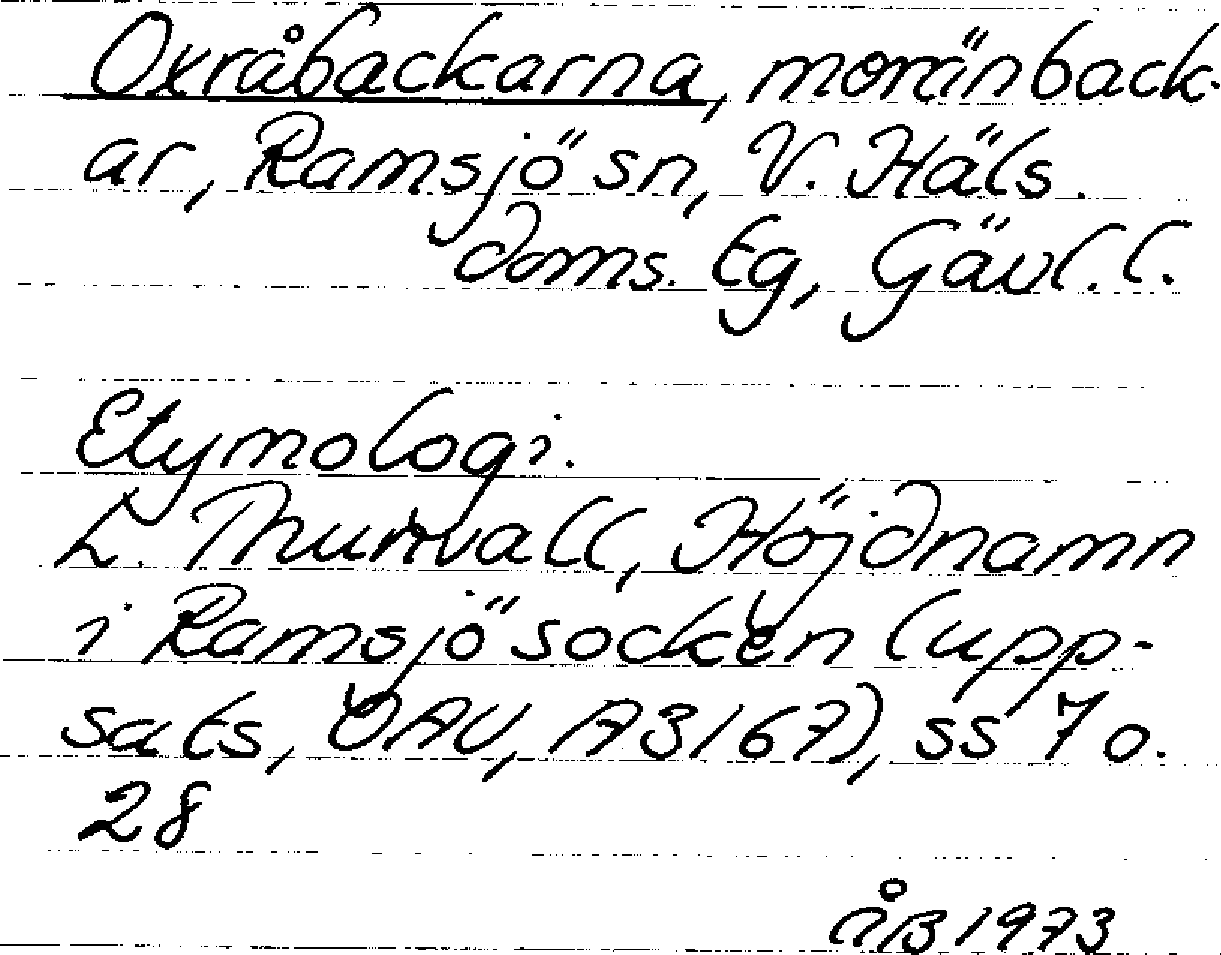 Oxråbackarna, moränback-
ar, Ramsjö sn, V. Häls.
doms. tg, Gävl. l.
Etymologi.
L. Thunvall, Höjdnamn
i Ramsjö socken (upp-
sats, OAU, A3167), ss 7 o.
28
ÅB 1973